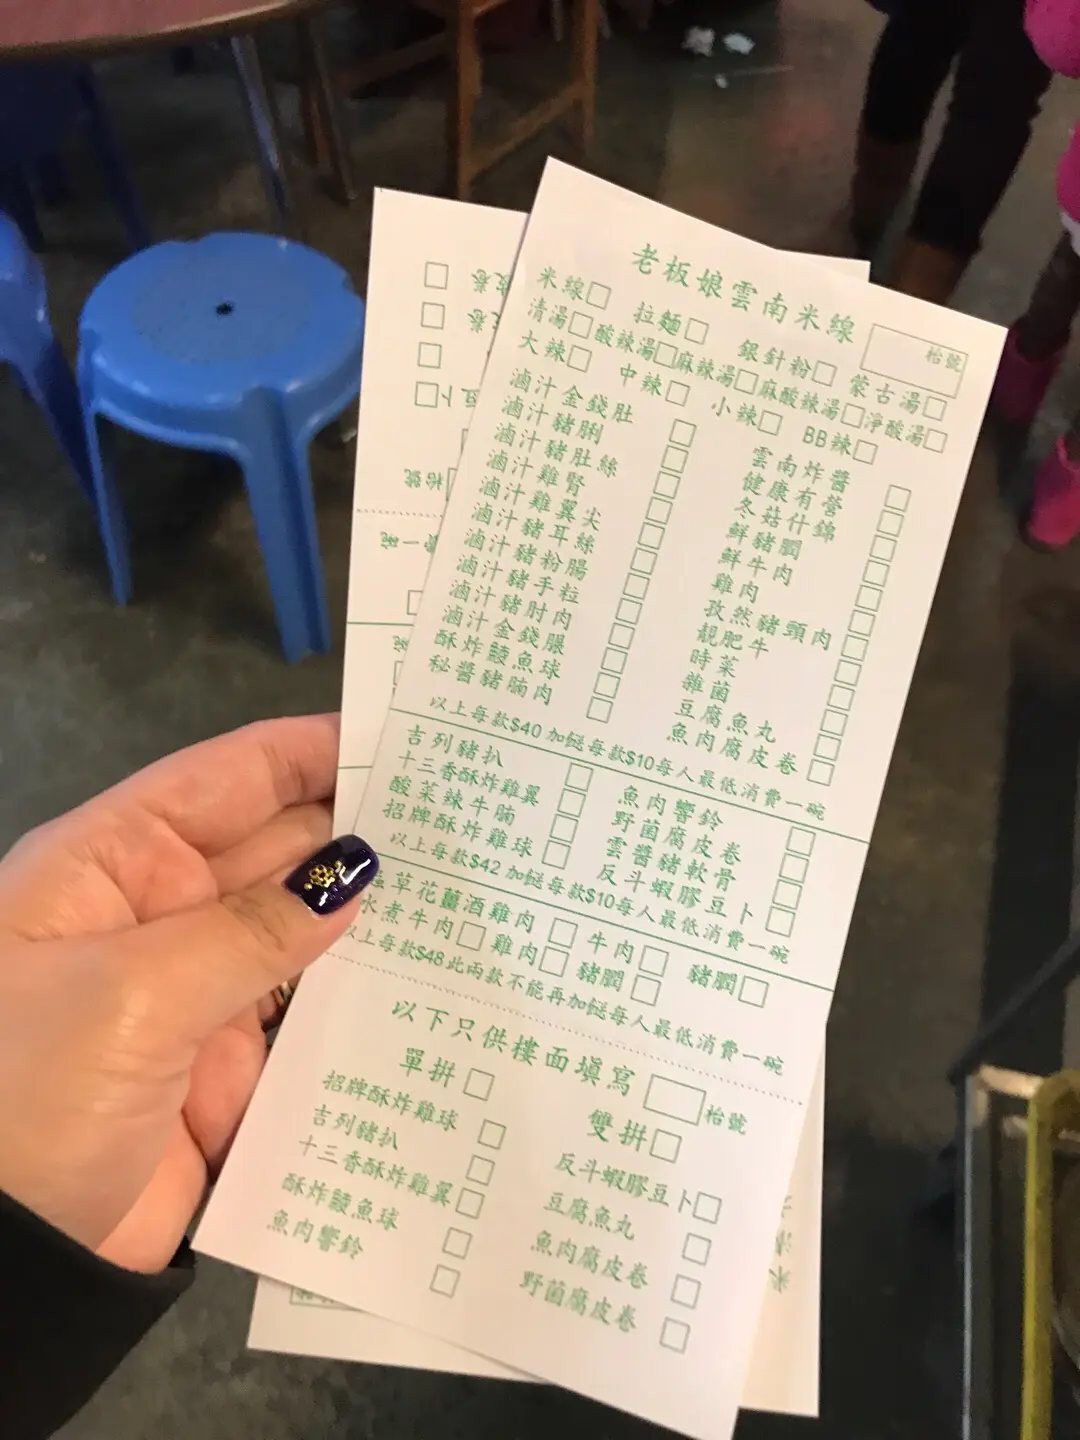 老板娘雲南米線
枱號
米線□ 拉麵□ 銀針粉□ 蒙古湯□
清湯□ 酸辣湯□ 麻辣湯□ 麻酸辣湯□ 淨酸湯□
大辣□ 中辣□ 小辣□ BB辣□
滷汁金錢肚□ 雲南炸醬□
滷汁豬脷□ 健康有營□
滷汁豬肚絲□ 冬菇什錦□
滷汁雞腎□ 鮮豬膶□
滷汁雞翼尖□ 鮮牛肉□
滷汁豬耳絲□ 雞肉□
滷汁豬粉腸□ 孜然豬頸肉□
滷汁豬手粒□ 靚肥牛□
滷汁豬肘肉□ 時菜□
滷汁金錢𦟌□ 雜菌□
酥炸鯪魚球□ 豆腐魚丸□
秘醬豬腩肉□ 魚肉腐皮卷□
以上每款$40 加餸每款$10每人最低消費一碗
吉列豬扒□ 魚肉響鈴□
十三香酥炸雞翼□ 野菌腐皮卷□
酸菜辣牛腩□ 雲醬豬軟骨□
招牌酥炸雞球□ 反斗蝦膠豆卜□
以上每款$42 加餸每款$10每人最低消費一碗
草花薑酒雞肉□ 牛肉□ 豬膶□
水煮牛肉□ 雞肉□ 豬膶□
以上每款$48 此兩款不能再加餸每人最低消費一碗
以下只供樓面填寫 枱號
單拼□ 雙拼□
招牌酥炸雞球□ 反斗蝦膠豆卜□
吉列豬扒□ 豆腐魚丸□
十三香酥炸雞翼□ 魚肉腐皮卷□
酥炸鯪魚球□ 野菌腐皮卷□
魚肉響鈴□